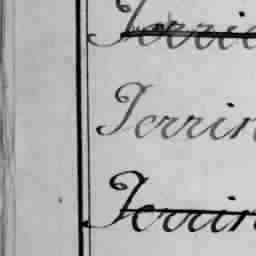 Terrie
Terrin
Terrin